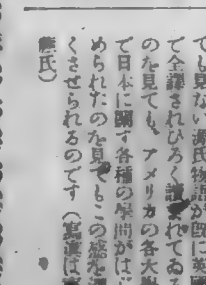 でも見ない源氏物語が既に英國
で全譯されひろく讀まれてゐる
のを見ても、アメリカの各大學
で日本に關す各種の學問がはじ
められたのを見てもこの感を深
くさせられるのです（寫眞は
氏）